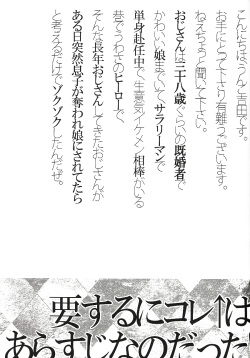 こんにちはうんと吉田です。
お手にとって下さりありがとうございます。
ねえちょっと聞いて下さい。
おじさんは三十八歳ぐらいの既婚者で
かわいい娘までいて、サラリーマンで
単身赴任中で、生意気イケメン相棒がいる
昔でうわさのヒーローで、
そんな長年おじさんしてきたおじさんが
ある日突然息子が奪われ娘にされてたら
と考えるだけでゾクゾクしたんだぜ。
要するにコレ↑は
あらすじなのだった!